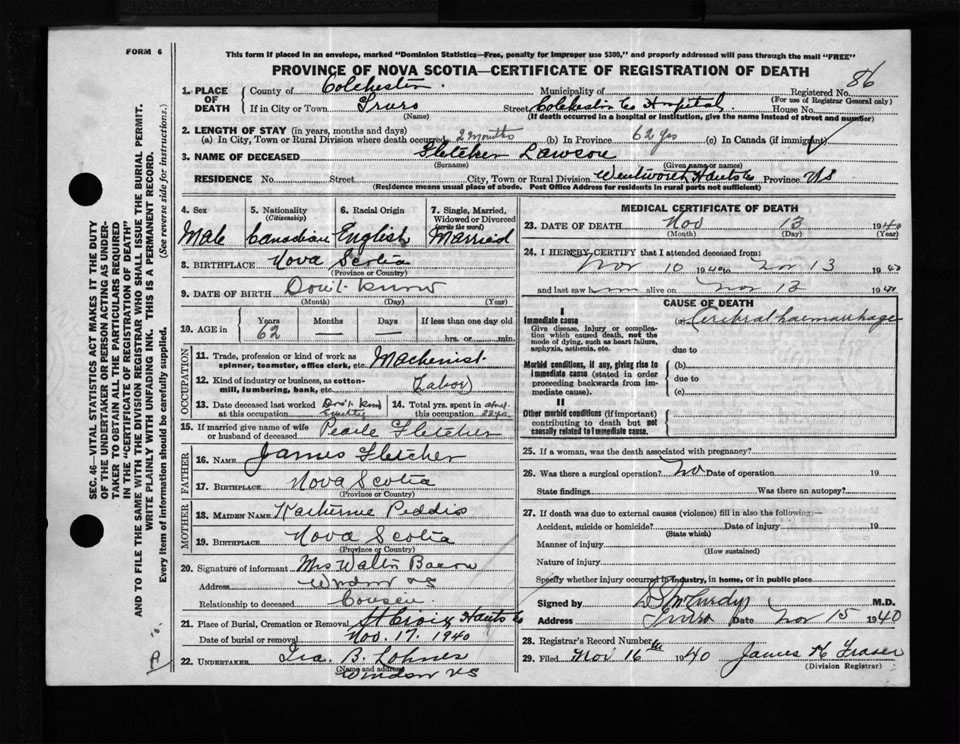 FORM 6
This form if placed in an envelope, marked "Dominion Statistics—Free, penalty for improper use $300," and properly addressed will pass through the mail "FREE"
PROVINCE OF NOVA SCOTIA—CERTIFICATE OF REGISTRATION OF DEATH
86
1. PLACE OF DEATH
County of Colchester Municipality of Registered No.
(For use of Registrar General only)
If in City or Town Truro Street Colchester Co Hospital House No.
(Name) (If death occurred in a hospital or institution, give the name instead of street and number)
2. LENGTH OF STAY (in years, months and days)
(a) In City, Town or Rural Division where death occurred 2 months (b) In Province 62 yrs (c) In Canada (if immigrant)
3. NAME OF DECEASED Fletcher Lawson
(Surname) (Given name or names)
RESIDENCE No. Street City, Town or Rural Division Wentworth Hants Co Province NS
(Residence means usual place of abode. Post Office Address for residents in rural parts not sufficient)
4. Sex Male
5. Nationality Canadian
6. Racial Origin English
7. Single, Married, Widowed or Divorced (write the word) Married
8. BIRTHPLACE Nova Scotia
(Province or Country)
9. DATE OF BIRTH Don't know
(Month) (Day) (Year)
10. AGE in Years 62 Months — Days — If less than one day old hrs. or min.
OCCUPATION
11. Trade, profession or kind of work as spinner, teamster, office clerk, etc. Machenist
12. Kind of industry or business, as cotton-mill, lumbering, bank, etc. Labor
13. Date deceased last worked at this occupation Don't know
14. Total yrs. spent in this occupation
15. If married give name of wife or husband of deceased Pearle Fletcher
FATHER
16. NAME James Fletcher
17. BIRTHPLACE Nova Scotia
(Province or Country)
MOTHER
18. MAIDEN NAME Katherine Peddis
19. BIRTHPLACE Nova Scotia
(Province or Country)
20. Signature of informant Mrs Walter
Address Windsor NS
Relationship to deceased Cousen
21. Place of Burial, Cremation or Removal St Croix Hants Co
Date of burial or removal Nov. 17. 1940
22. UNDERTAKER Ira. B. Lohnes
(Name and address)
Windsor NS
MEDICAL CERTIFICATE OF DEATH
23. DATE OF DEATH Nov 13 1940
(Month) (Day) (Year)
24. I HEREBY CERTIFY that I attended deceased from:
Nov 10 1940 to Nov 13 1940
and last saw him alive on Nov 13 1940
CAUSE OF DEATH
I
Immediate cause (a) Cerebral haemorrhage
Give disease, injury or complication which caused death, not the mode of dying, such as heart failure, asphyxia, asthenia, etc.
due to
Morbid conditions, if any, giving rise to immediate cause (stated in order proceeding backwards from immediate cause).
(b)
due to
(c)
II
Other morbid conditions (if important) contributing to death but not causally related to immediate cause.
25. If a woman, was the death associated with pregnancy?
26. Was there a surgical operation? No Date of operation 19
State findings Was there an autopsy?
27. If death was due to external causes (violence) fill in also the following:—
Accident, suicide or homicide? Date of injury 19
(State which)
Manner of injury
(How sustained)
Nature of injury
Specify whether injury occurred in industry, in home, or in public place
Signed by D S McCurdy M.D.
Address Truro Date Nov 15 1940
28. Registrar's Record Number
29. Filed Nov 16th 1940 James K Fraser
(Division Registrar)
SEC. 46—VITAL STATISTICS ACT MAKES IT THE DUTY
OF THE UNDERTAKER OR PERSON ACTING AS UNDER-
TAKER TO OBTAIN ALL THE PARTICULARS REQUIRED
IN THE "CERTIFICATE OF REGISTRATION OF DEATH"
AND TO FILE THE SAME WITH THE DIVISION REGISTRAR WHO SHALL ISSUE THE BURIAL PERMIT.
WRITE PLAINLY WITH UNFADING INK. THIS IS A PERMANENT RECORD.
Every item of information should be carefully supplied. (See reverse side for instructions.)